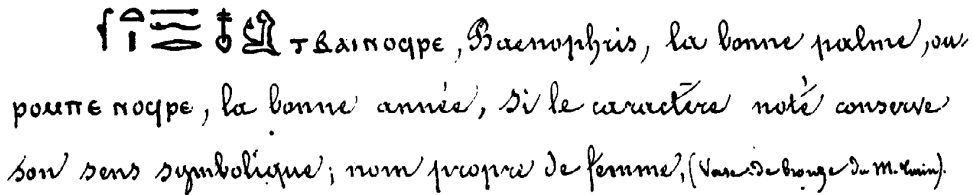 ⲧⲃⲁⲓⲛⲟϥⲣⲉ, Baenophris, la bonne palme, ou
ⲣⲟⲙⲡⲉ ⲛⲟϥⲣⲉ, la bonne année, si le caractère noté conserve
son sens symbolique; nom propre de femme, (Vase de bronze du M. turin).